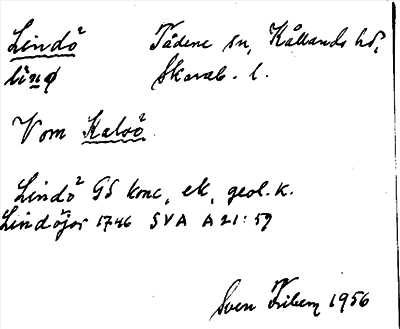 Lindö Tådene sn, Kållands hd,
linø Skarab. l.
Vom Kalvö
Lindö GS konc, ek, geol. k.
Lindöjor 1746 SVA A21:59
Sven Friberg 1956